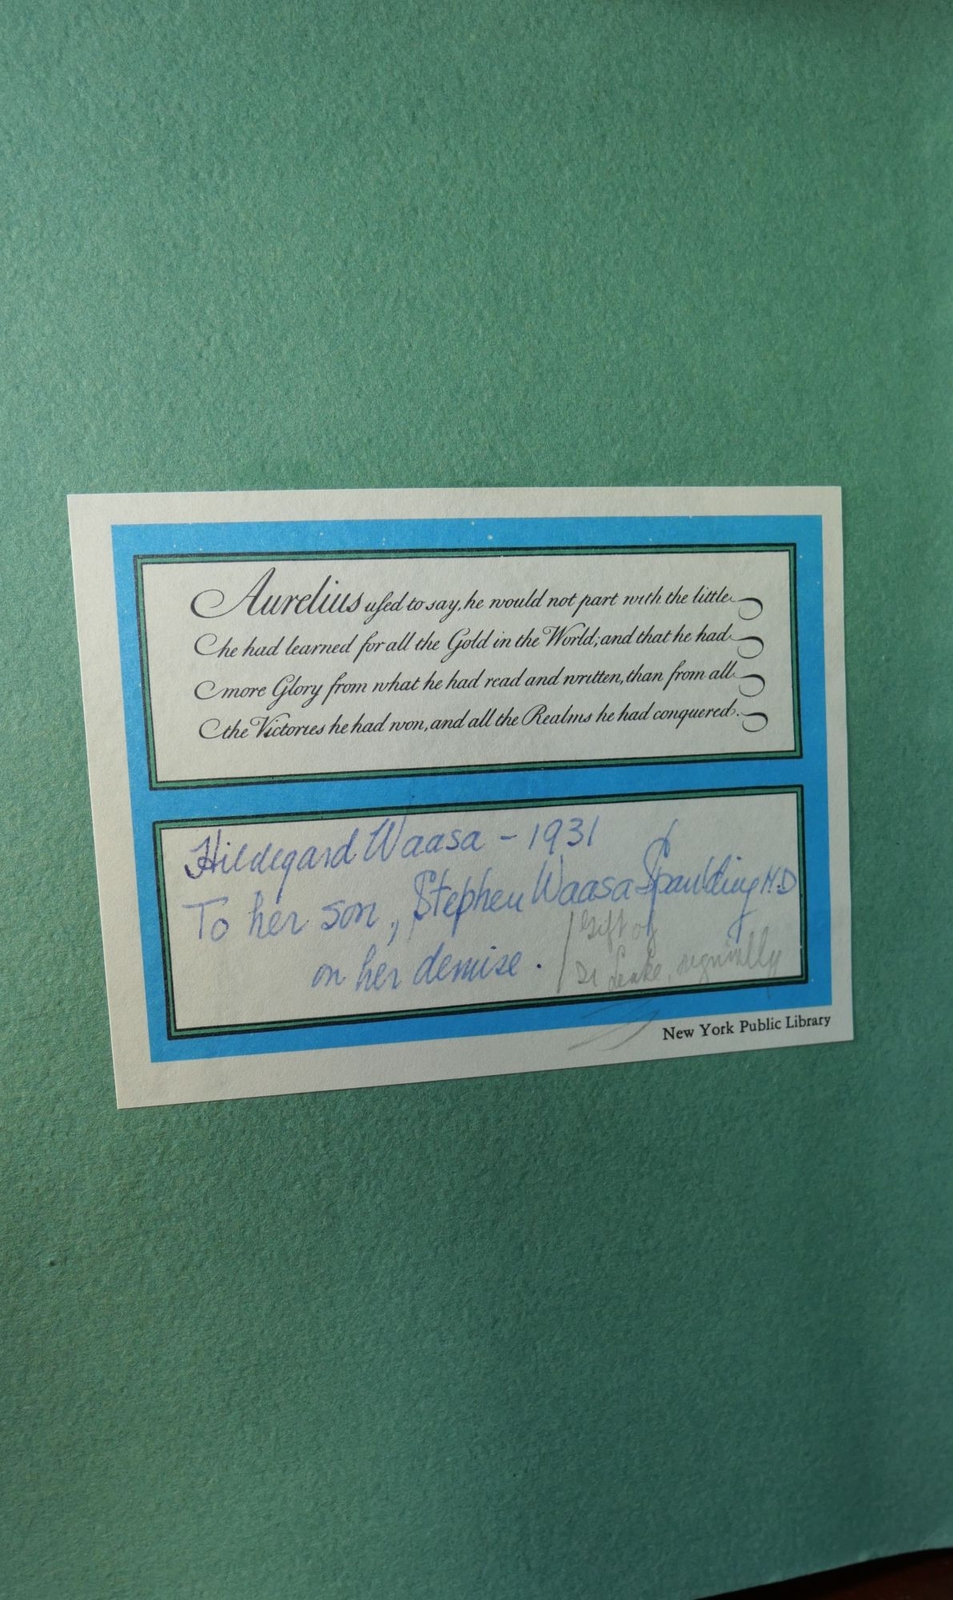 Aurelius uſed to say, he would not part with the little
he had learned for all the Gold in the World; and that he had
more Glory from what he had read and written, than from all
the Victories he had won, and all the Realms he had conquered.
Hildegard Waasa - 1931
To her son, Stephen Waasa Spaulding M.D
on her demise.
Gift of
Dr Leake, originally
New York Public Library